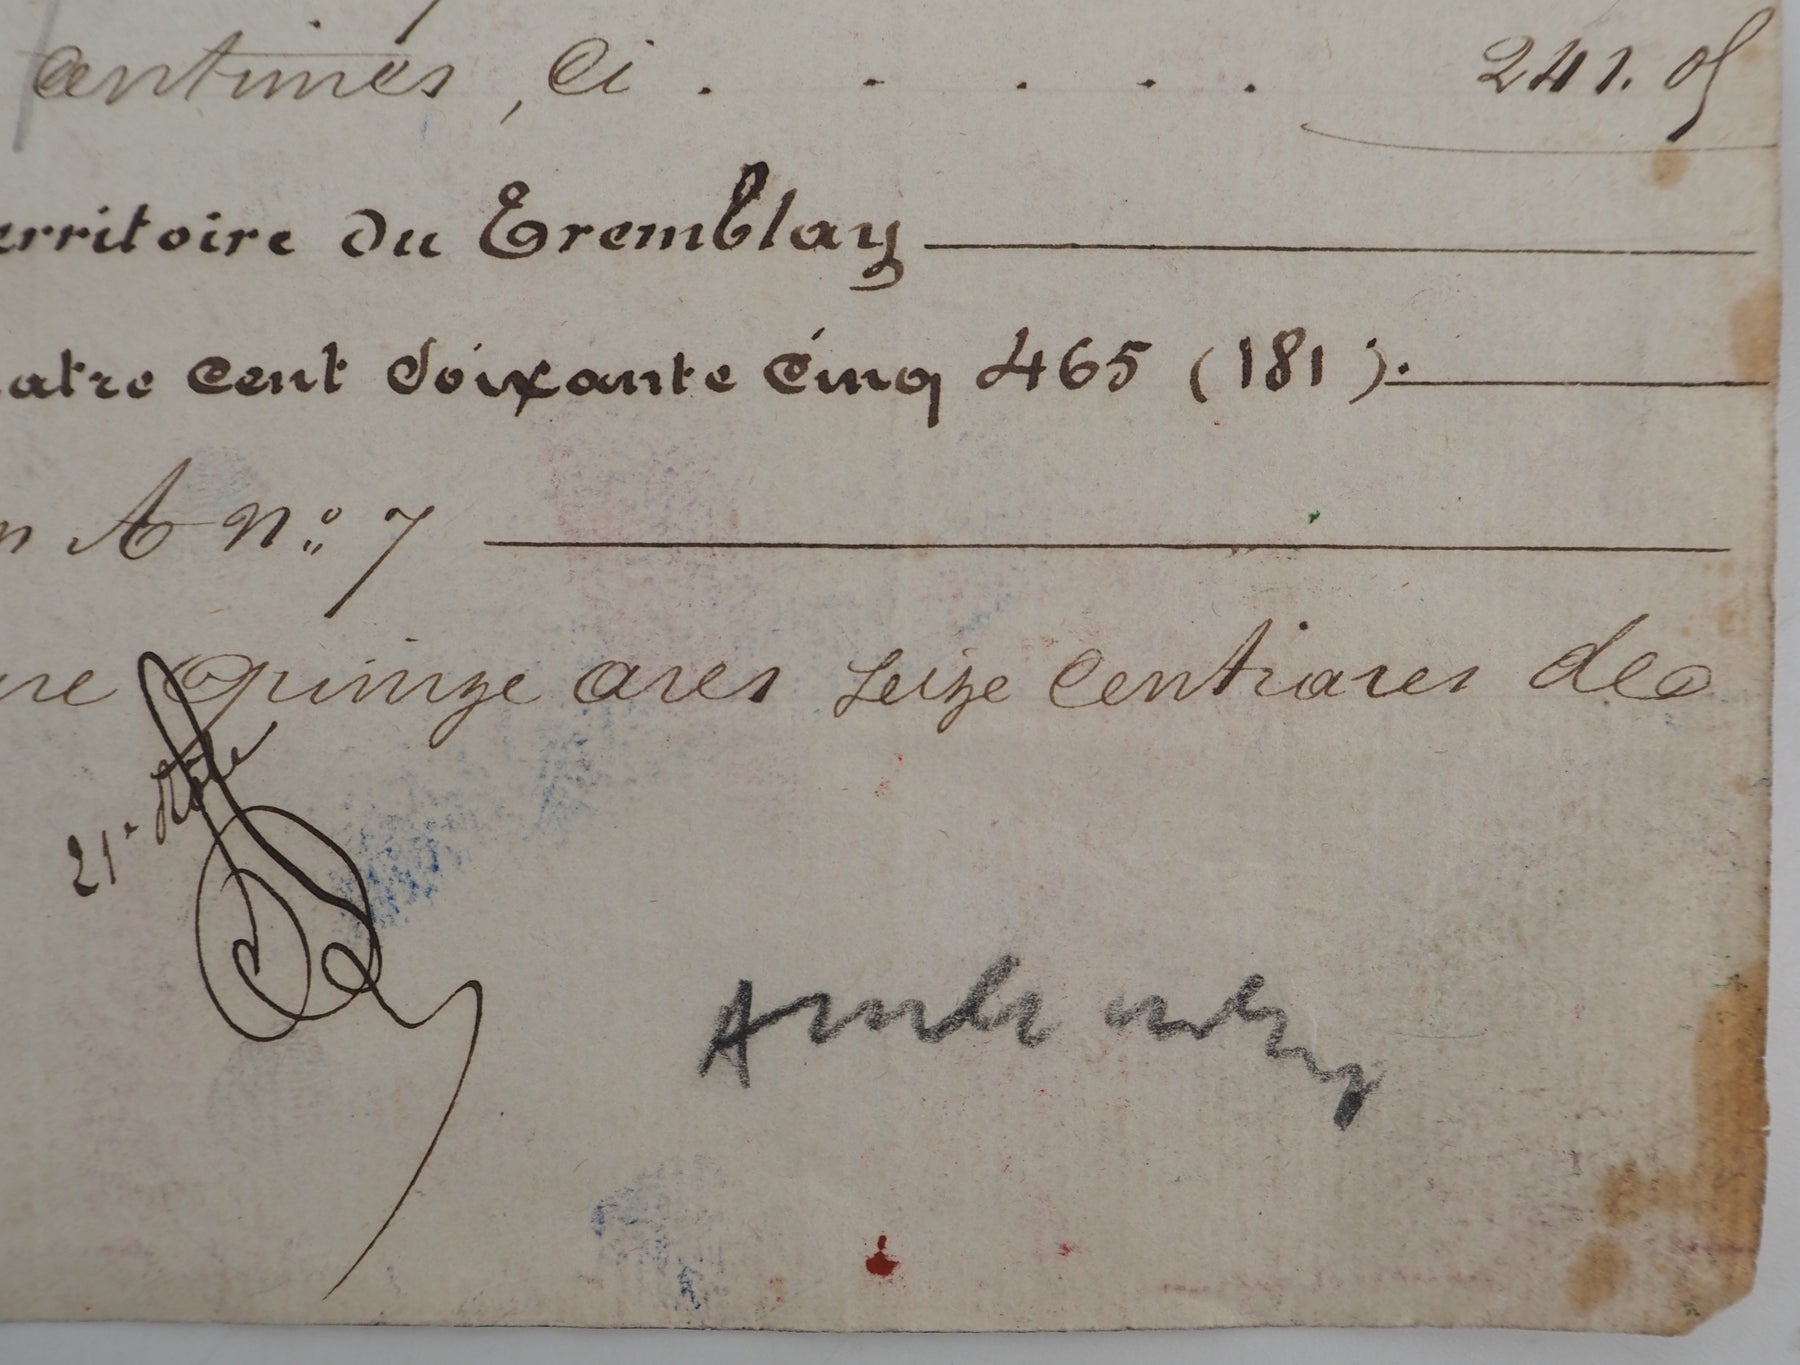 centimes, ci . . . . . 241.05
erritoire du Tremblay
atre cent soixante cinq 465 (181).
n A No: 7
re quinze ares seize centiares de
21e Rôle